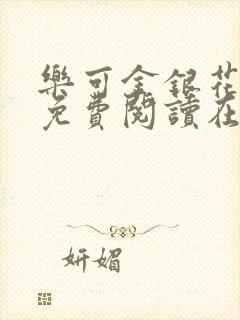 樂可金銀花
免費閱讀在
妍媚